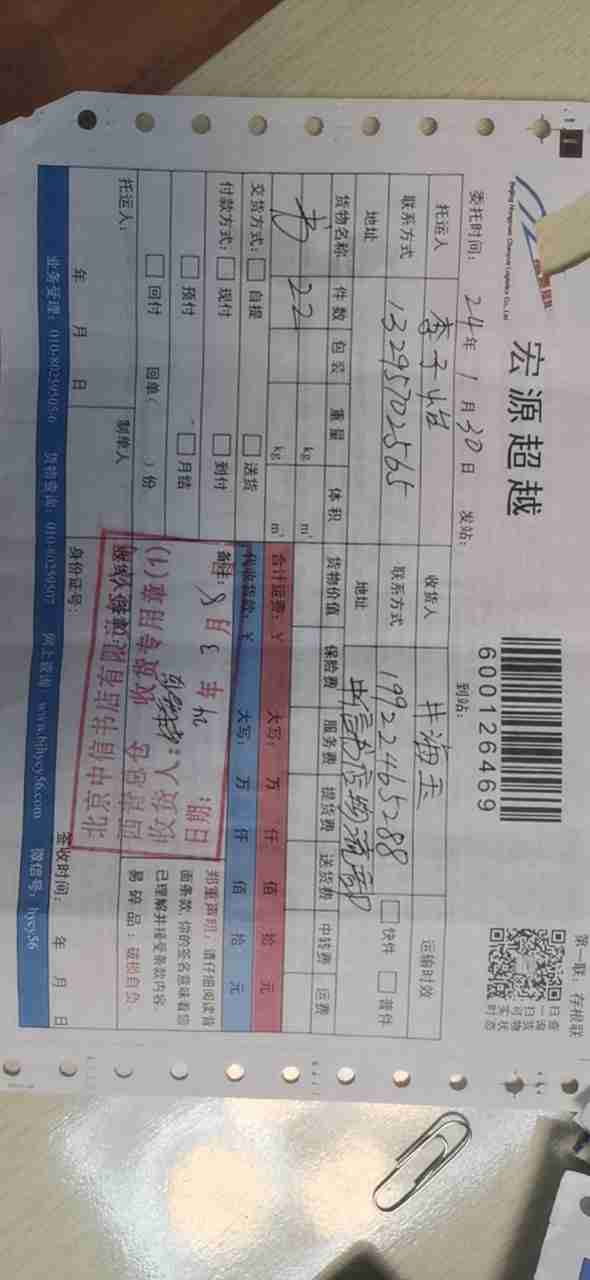 第一联：存根联
宏源超越
Beijing Hongyuan Chaoyue Logistics Co., Ltd
600126469
扫一扫
查询货物
实时状态
委托时间：24年1月30日 发站： 到站：
托运人 李子怡 收货人 井海玉 运输时效
联系方式 13295702565 联系方式 19922465288 快件 普件
地址 地址 中信书店物流部
货物名称 件数 包装 重量 体积 货物价值 保险费 服务费 提货费 送货费 中转费 运费
书 22 kg m³
kg m³
交货方式： 自提 送货 合计运费：￥ 大写： 万 仟 佰 拾 元
付款方式： 现付 到付 代收货款：￥ 大写： 万 仟 佰 拾 元
预付 月结 备注：
回付 回单（ ）份
郑重声明：请仔细阅读背
面条款，你的签名意味着您
已理解并接受条款内容。
易碎品：破损自负。
托运人： 制单人
年 月 日 身份证号： 签收时间： 年 月 日
收货专用章(1)
收货人：
日期：
业务受理：010-80259505/6 货物查询：010-80259507 网上查询：www.bjhycy56.com 微信号：hycy56